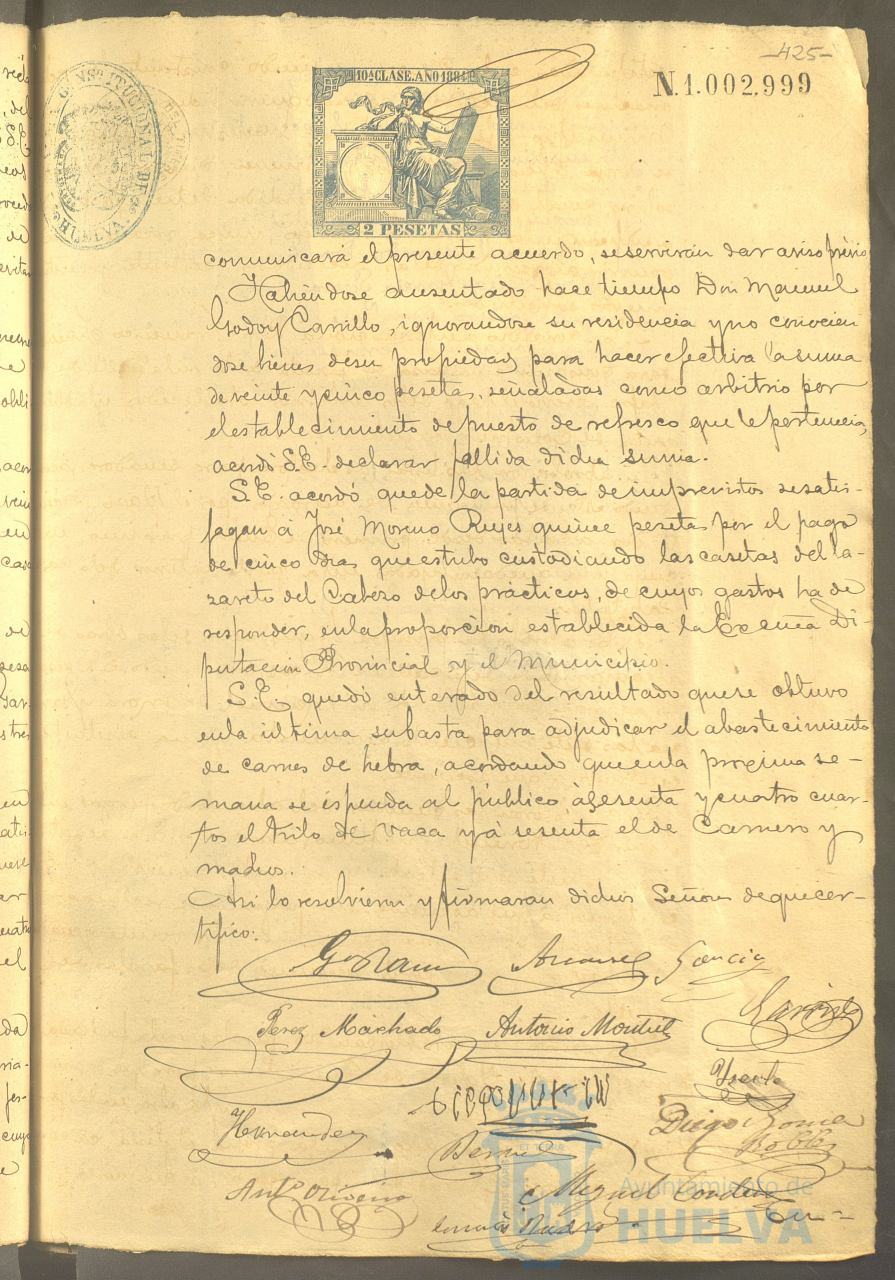 -425-
10ª CLASE. AÑO 1884
N.1.002,999
CONSTITUCIONAL DE
HUELVA
2 PESETAS
comunicará el presente acuerdo, se servirán dar aviso prévio
Habiéndose ausentado hace tiempo Don Manuel
Godoy Carrillo, ignorandose su residencia y no conocien
dose bienes de su propiedad para hacer efectiva la suma
de veinte y cinco pesetas, señaladas como arbitrio por
el establecimiento de puesto de refresco que le pertenecia,
acordó S.E. declarar fallida dicha suma.
S.E. acordó que de la partida de imprevistos se satis-
fagan á José Moreno Reyes quince pesetas por el pago
de cinco dias que estubo custodiando las casetas del la-
zareto del Cabezo de los prácticos, de cuyos gastos ha de
responder, en la proporcion establecida la Excma Di-
putacion Provincial y el Municipio.
S.E. quedó enterado del resultado que se obtuvo
en la última subasta para adjudicar el abastecimiento
de carnes de hebra, acordando que en la proxima se-
mana se espenda al público á sesenta y cuatro cuar-
tos el kilo de vaca y á sesenta el de Carnero y
machos.
Asi lo resolvieron y firmaran dichos Señores de que cer-
tifico:
Garcia
Perez Machado
Antonio Montiel
Hernandez
Bernal
Diego
Robles
Antº Oliveira
Miguel Conde
Ayuntamiento de
HUELVA